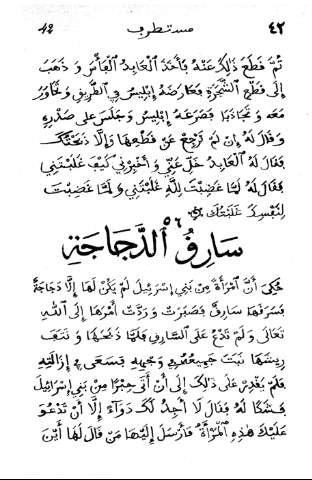 ٤٢ مستطرف 42
ثُمَّ قَطَعَ ذَلِكَ عَنْهُ فَأَخَذَ الْعَابِدُ الْفَأْسَ وَ ذَهَبَ
إِلَى قَطْعِ الشَّجَرَةِ فَعَارَضَهُ إِبْلِيسُ فِي الطَّرِيقِ وَ تَحَاوَرَ
مَعَهُ وَ تَجَاذَبَا فَصَرَعَهُ إِبْلِيسُ وَ جَلَسَ عَلَى صَدْرِهِ
وَ قَالَ لَهُ إِنْ لَمْ تَرْجِعْ عَنْ قَطْعِهَا وَ إِلَّا ذَبَحْتُكَ
فَقَالَ لَهُ الْعَابِدُ خَلِّ عَنِّي وَ أَخْبِرْنِي كَيْفَ غَلَبْتَنِي
فَقَالَ لَهُ لَمَّا غَضِبْتَ لِلَّهِ غَلَبْتَنِي وَ لَمَّا غَضِبْتَ
لِنَفْسِكَ غَلَبْتُكَ
سَارِقُ الدَّجَاجَةِ
حُكِيَ أَنَّ امْرَأَةً مِنْ بَنِي إِسْرَئِيلَ لَمْ يَكُنْ لَهَا إِلَّا دَجَاجَةٌ
فَسَرَقَهَا سَارِقٌ فَصَبَرَتْ وَ رَدَّتْ أَمْرَهَا إِلَى اللهِ
تَعَالَى وَ لَمْ تَدْعُ عَلَى السَّارِقِ فَلَمَّا ذَبَحَهَا وَ نَتَفَ
رِيشَهَا نَبَتَ جَمِيعُهُ فِي وَجْهِهِ فَسَعَى فِي إِزَالَتِهِ
فَلَمْ يَقْدِرْ عَلَى ذَلِكَ إِلَى أَنْ أَتَى حِبْرًا مِنْ بَنِي إِسْرَائِيلَ
فَشَكَا لَهُ فَقَالَ لَا أَجِدُ لَكَ دَوَاءً إِلَّا أَنْ تَدْعُوَ
عَلَيْكَ هَذِهِ الْمَرْأَةُ فَأَرْسَلَ إِلَيْهَا مَنْ قَالَ لَهَا أَيْنَ